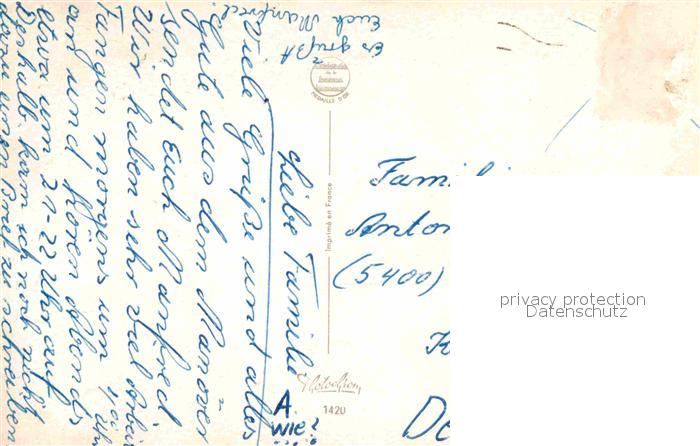 Liebe Familie
Viele Grüße und alles
Gute aus dem Manöver
sendet Euch Manfred
Wir haben sehr viel Arbeit
fangen morgens um 7,00 Uhr
an und hören Abends
etwa um 21-22 Uhr auf
Deshalb kam ich noch nicht
dazu einen Brief zu schreiben
Es grüßt
Euch Manfred.
A.
wie?
MEDAILLE D'OR
Imprimé en France
Photochrom
1420
Fami
Anton
(5400)
K
De
privacy protection
Datenschutz